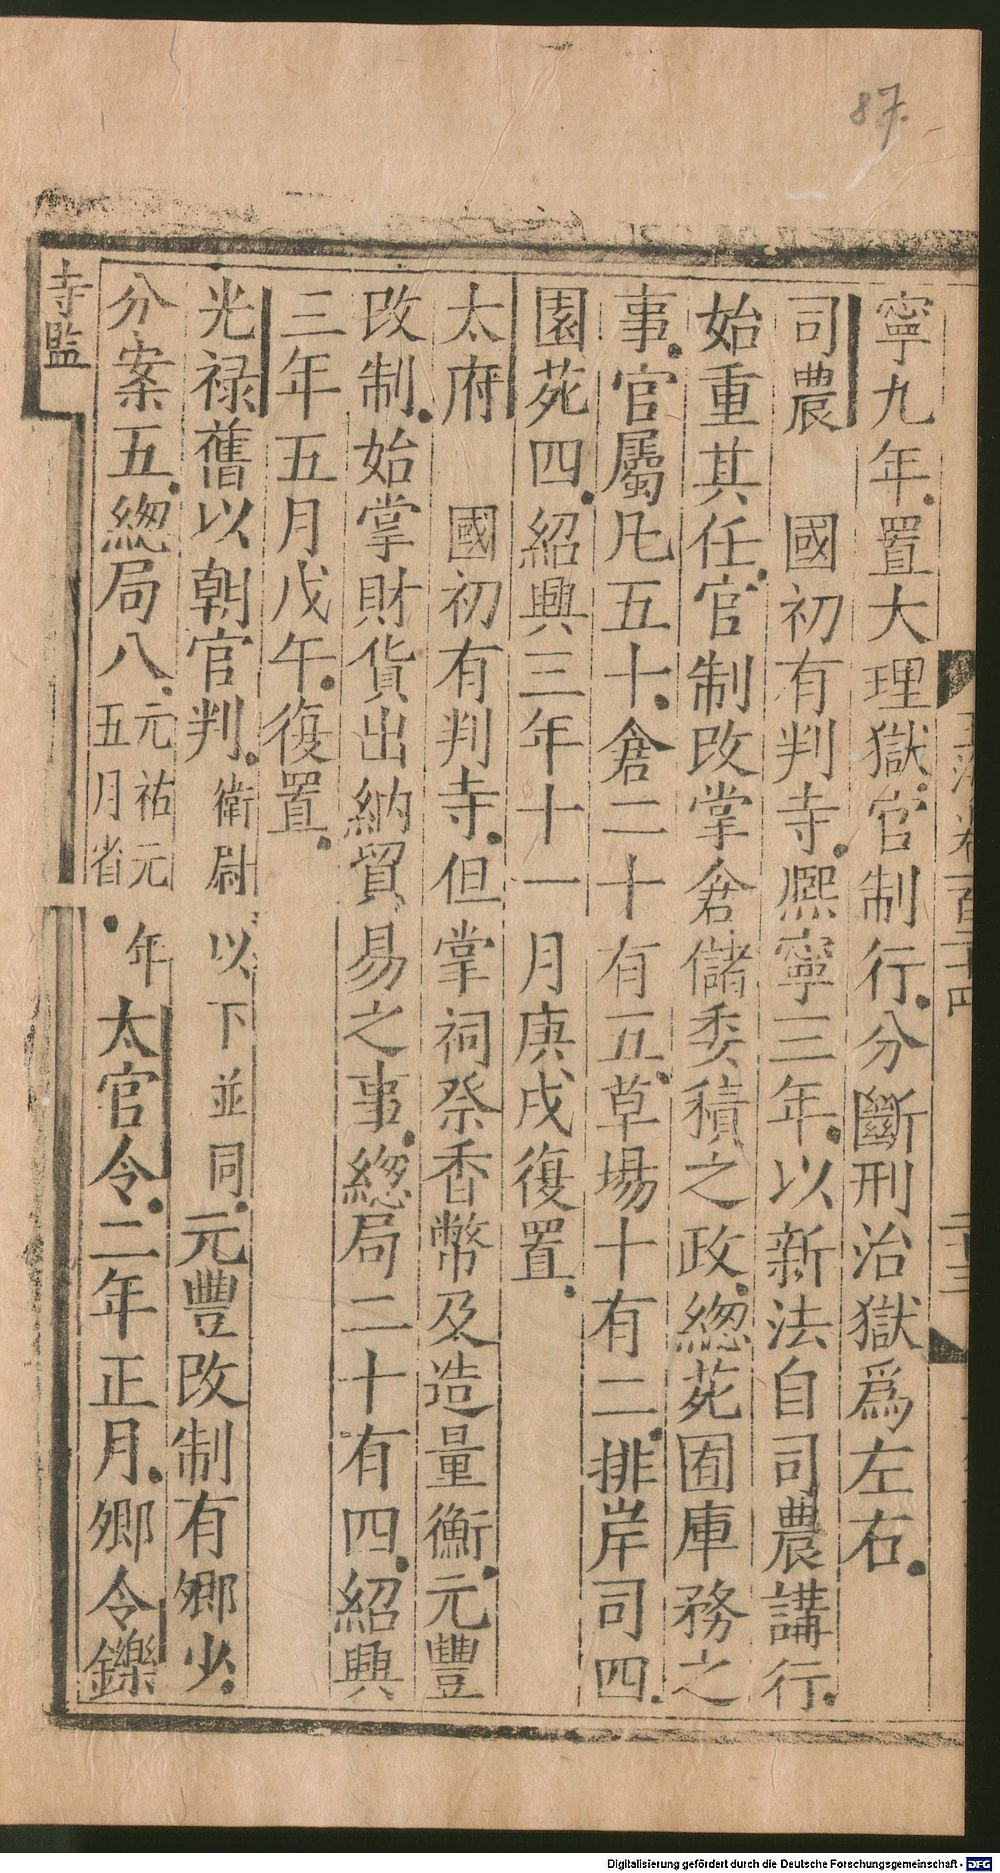 87.
寧九年置大理獄官制行分斷刑治獄爲左右
司農　國初有判寺熙寧三年以新法自司農講行
始重其任官制改掌倉儲委積之政緫苑囿庫務之
事官屬凡五十倉二十有五草場十有二排岸司四
園苑四紹興三年十一月庚戌復置
太府　國初有判寺但掌祠祭香幣及造量衡元豐
改制始掌財貨出納貿易之事緫局二十有四紹興
三年五月戊午復置
光禄舊以朝官判衛尉以下並同元豐改制有卿少
分案五緫局八元祐元年五月省太官令二年正月卿令鑠
寺監
Digitalisierung gefördert durch die Deutsche Forschungsgemeinschaft - DFG